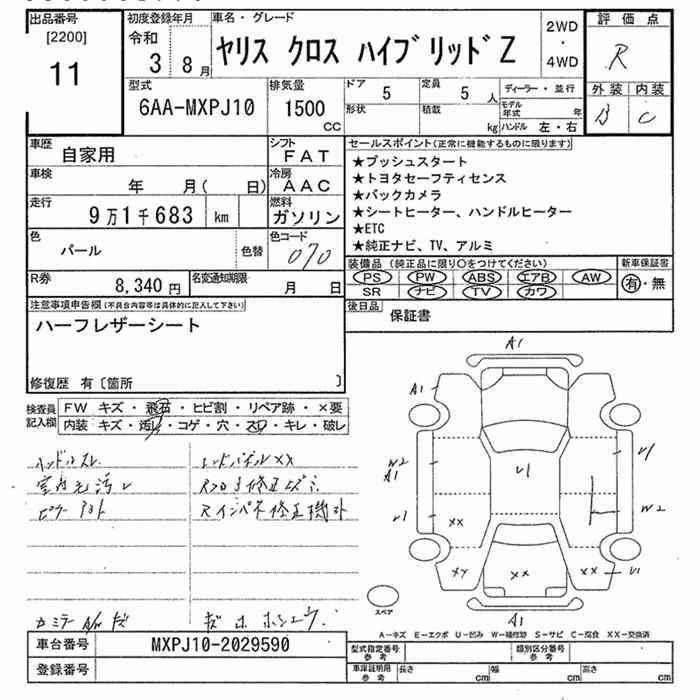 出品番号
[2200]
11
初度登録年月
令和
3 8月
車名・グレード
ヤリス クロス ハイブリッド Z
2WD
・
4WD
評価点
R
外装 内装
B C
型式
6AA-MXPJ10
排気量
1500
CC
ドア
5
定員
5 人
形状
積載
kg
ディーラー・並行
モデル年式 年
ハンドル 左・右
車歴
自家用
シフト
FAT
車検
年 月( 日)
冷房
AAC
走行
9万1千683 km
燃料
ガソリン
色
パール
色替
色コード
070
R券
8,340 円
名変通知期限
月 日
セールスポイント(正常に機能するものに限ります)
★プッシュスタート
★トヨタセーフティセンス
★バックカメラ
★シートヒーター、ハンドルヒーター
★ETC
★純正ナビ、TV、アルミ
装備品(純正品に限り○をつけてください)
PS PW ABS エアB AW
SR ナビ TV カワ
新車保証書
有・無
後日品
保証書
注意事項申告欄(不具合内容等は具体的に記入して下さい)
ハーフレザーシート
修復歴 有〔箇所 〕
検査員記入欄
FW キズ・飛石・ヒビ割・リペア跡・×要
内装 キズ・汚れ・コゲ・穴・スレ・キレ・破レ
ハンドルスレ
室内光汚レ
A1
A1
W2
A1
U1
U1
U1
W2
XX
XX
XX
XX
U1
A1
スペア
A-キズ E-エクボ U-凹み W-補修跡 S-サビ C-腐食 XX-交換済
車台番号
MXPJ10-2029590
登録番号
型式指定番号
参考
類別区分番号
参考
車庫証明用
参考
長さ cm
幅 cm
高さ cm